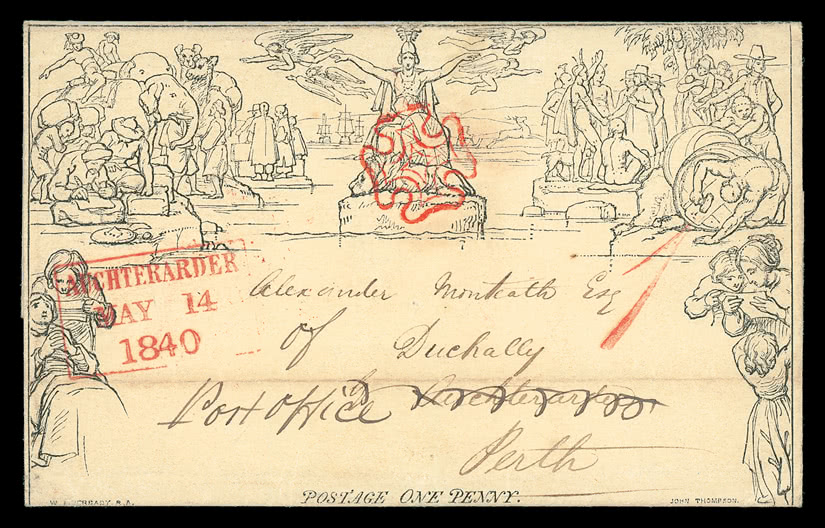 AUCHTERARDER
MAY 14
1840
Alexander Monteath Esq
of Duchally
Post office Auchterarder
Perth
W. MULREADY. R.A.
POSTAGE ONE PENNY.
JOHN THOMPSON.